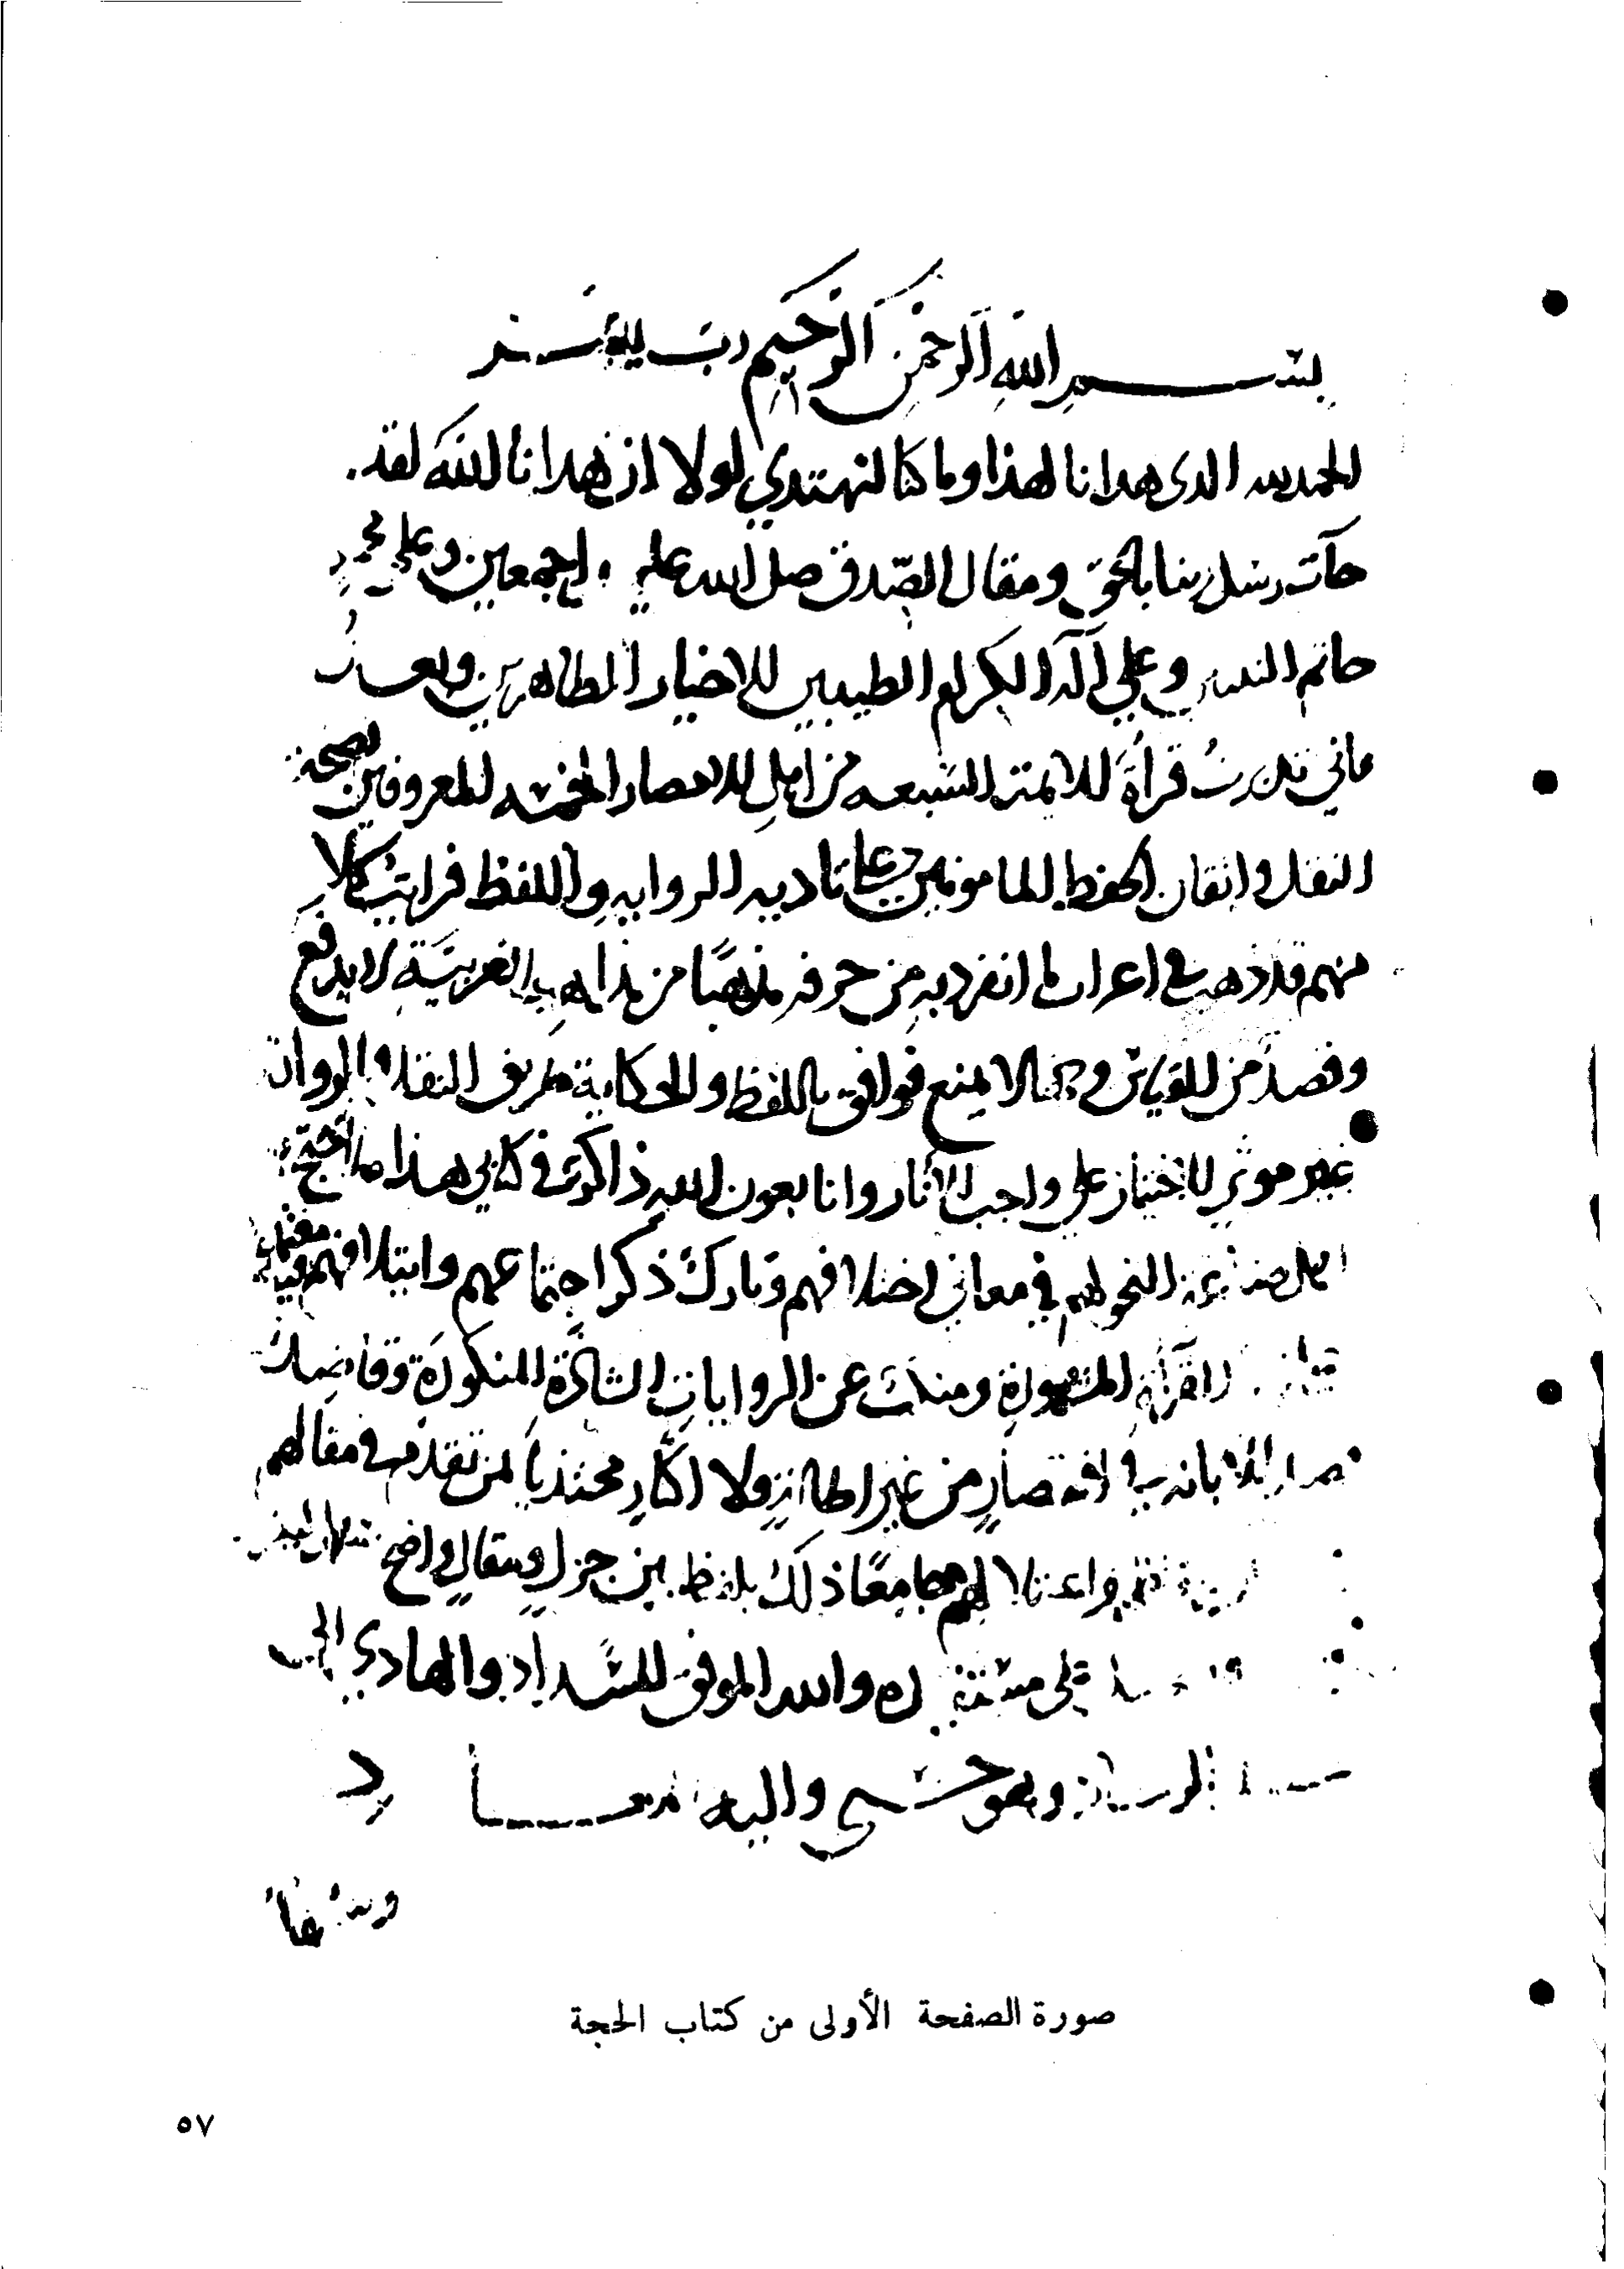 بسم الله الرحمن الرحيم رب يسر
الحمد لله الذى هدانا لهذا وما كنا لنهتدي لولا ان هدانا الله لقد
جآت رسل ربنا بالحق ومقال الصدق صلى الله عليهم اجمعين وعلى محمد
خاتم النبيين وعلى آله الكرام الطيبين الاخيار الطاهرين وبعد
فاني تدبرت قرأة الايمة السبعه من اهل الامصار الخمسه المعروفين بصحة
النقل واتقان الحفظ المامونين على تاديه الروايه واللفظ فرايت كلا
منهم قد ذهب في اعراب ما انفرد به من حرفه مذهبا من مذاهب العربية لا يدفع
وقصد من القياس وجها لا يمنع فوافق باللفظ والحكاية طريق النقل والرواية
غير موثر للاختيار على واجب الآثار وانا بعون الله ذاكر في كتابي هذا ما احتج به
اهل صناعة النحو لهم في معاني اختلافهم وتارك ذكر اجتماعهم وايتلافهم معتمد فيه
على القرأة المشهورة ومنكب عن الروايات الشاذة المنكورة وقاصد
قصد الابانه في اقتصار من غير اطالة ولا اكثار محتذيا لمن تقدم في مقالهم
لهم جامعا ذلك بلفظ بين جزل ومقال واضح سهل
والله الموفق للسداد والهادي الى
وهو حسبي واليه معاد
صورة الصفحة الأولى من كتاب الحجة
٥٧